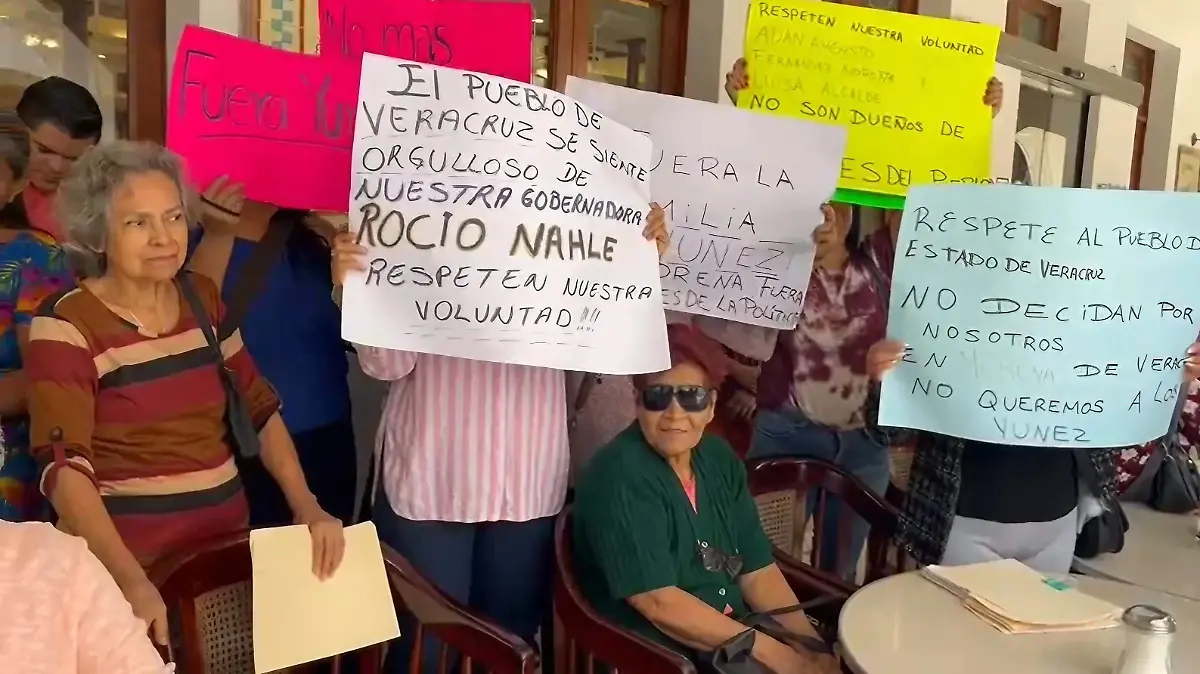 No mas
Fuera Yun
El PUEBLO DE
VERACRUZ SE SIENTE
ORGULLOSO DE
NUESTRA GOBERNADORA
ROCIO NAHLE
RESPETEN NUESTRA
VOLUNTAD !!!
UERA LA
MILIA
YUNEZ
ORENA FUERA
ES DE LA POLITICA
RESPETEN NUESTRA VOLUNTAD
ADAN AUGUSTO
FERNANDEZ NOROÑA
LUISA ALCALDE
NO SON DUEÑOS DE
ES DEL
RESPETE AL PUEBLO D
ESTADO DE VERACRUZ
NO DECIDAN POR
NOSOTROS
EN MORENA DE VERAC
NO QUEREMOS A LOS
YUNEZ